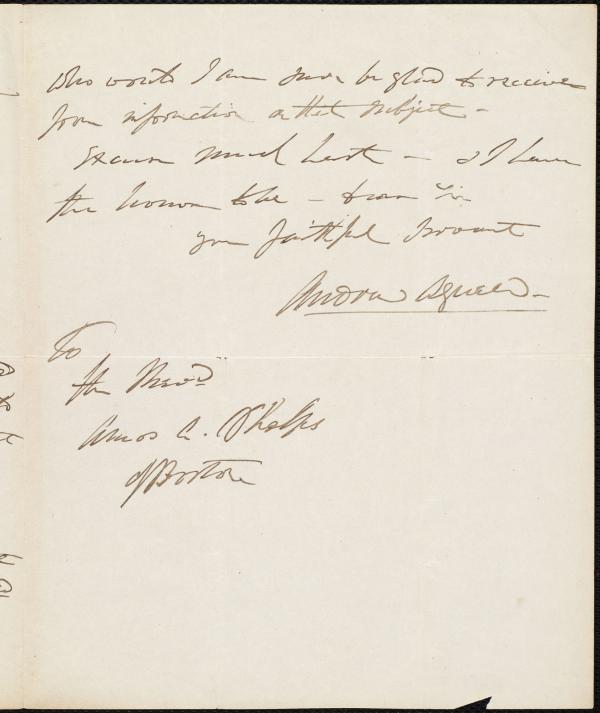 who would I am sure be glad to receive
from information on that subject -
Excuse much haste - & I have
the honour to be - dear Sir
your faithful Servant
Andrew Agnew -
To
the Revd
Amos A. Phelps
of Boston